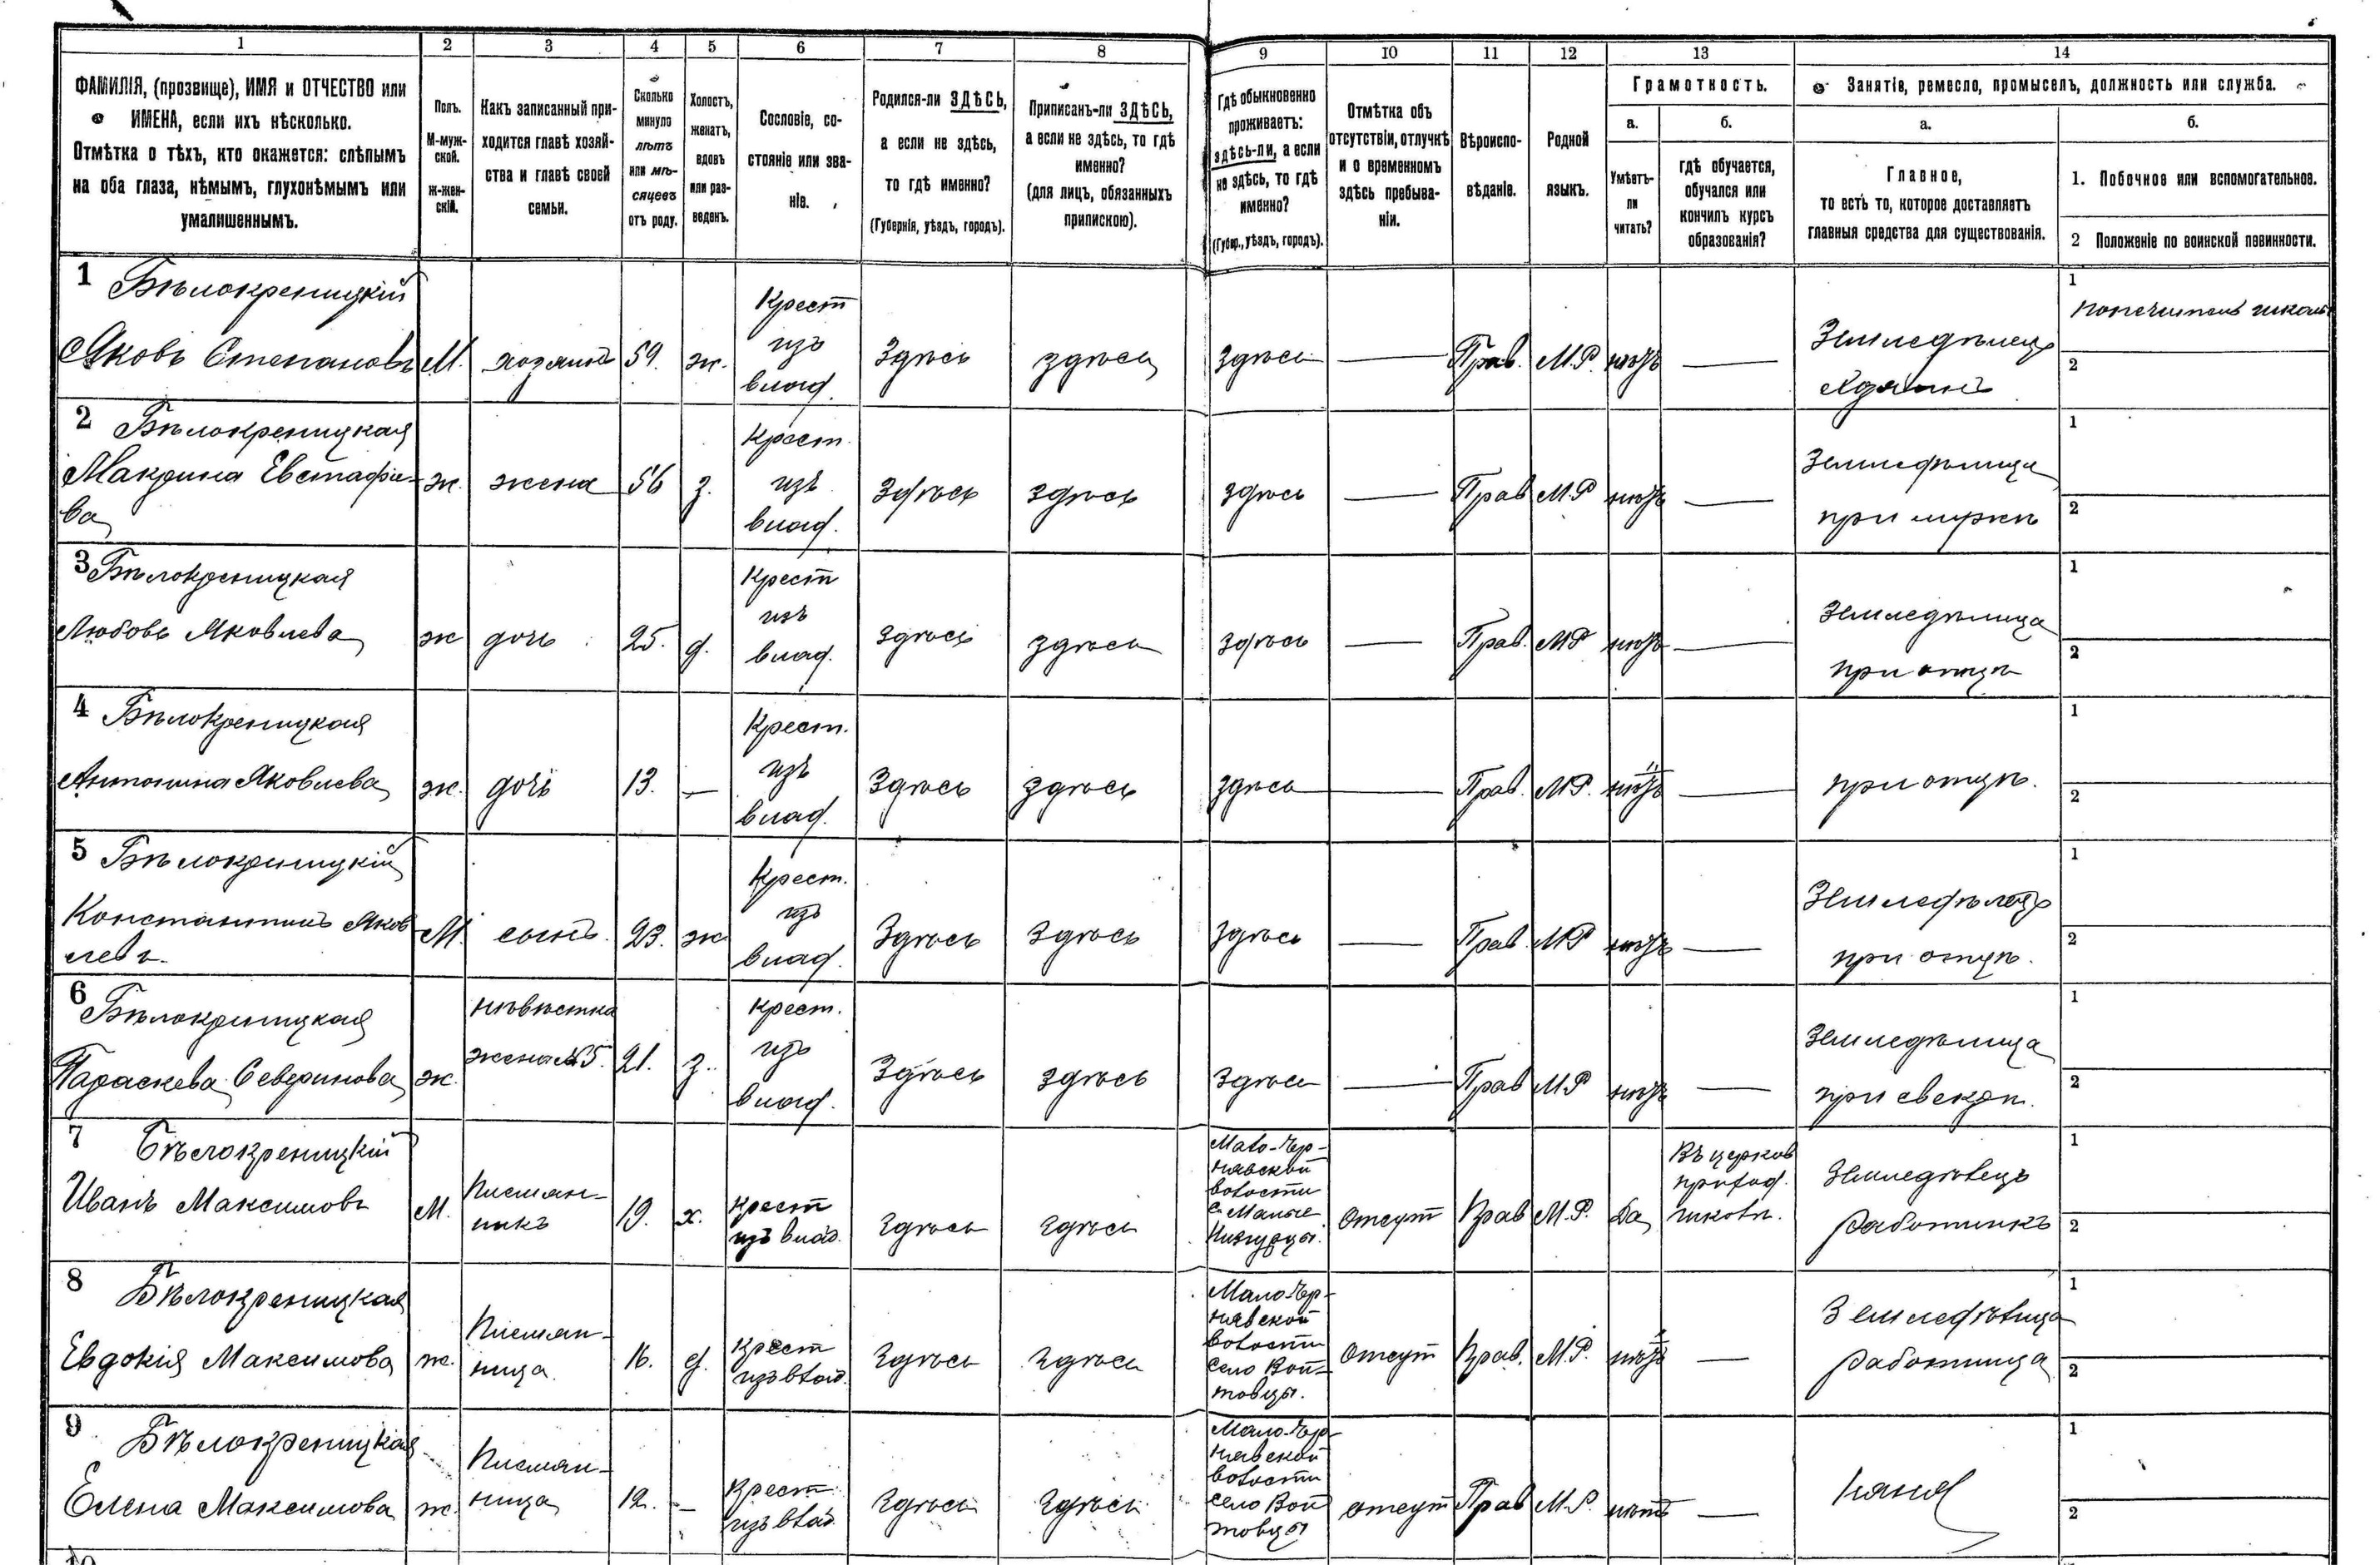 1 2 3 4 5 6 7 8 9 10 11 12 13 14
ФАМИЛІЯ, (прозвище), ИМЯ и ОТЧЕСТВО или
ИМЕНА, если ихъ нѣсколько.
Отмѣтка о тѣхъ, кто окажется: слѣпымъ
на оба глаза, нѣмымъ, глухонѣмымъ или
умалишеннымъ.
Полъ.
М-муж-
ской.
ж-жен-
скій.
Какъ записанный при-
ходится главѣ хозяй-
ства и главѣ своей
семьи.
Сколько
минуло
лѣтъ
или мѣ-
сяцевъ
отъ роду.
Холостъ,
женатъ,
вдовъ
или раз-
веденъ.
Сословіе, со-
стояніе или зва-
ніе.
Родился-ли ЗДѢСЬ,
а если не здѣсь,
то гдѣ именно?
(Губернія, уѣздъ, городъ).
Приписанъ-ли ЗДѢСЬ,
а если не здѣсь, то гдѣ
именно?
(для лицъ, обязанныхъ
припискою).
Гдѣ обыкновенно
проживаетъ:
здѣсь-ли, а если
не здѣсь, то гдѣ
именно?
(Губер., уѣздъ, городъ).
Отмѣтка объ
отсутствіи, отлучкѣ
и о временномъ
здѣсь пребыва-
ніи.
Вѣроиспо-
вѣданіе.
Родной
языкъ.
Грамотность.
а.
Умѣетъ-
ли
читать?
б.
гдѣ обучается,
обучался или
кончилъ курсъ
образованія?
Занятіе, ремесло, промыселъ, должность или служба.
а.
Главное,
то есть то, которое доставляетъ
главныя средства для существованія.
б.
1. Побочное или вспомогательное.
2 Положеніе по воинской повинности.
1 Бѣлокреницкій
Яковъ Степановъ
М.
хозяинъ
59.
ж.
Крест
изъ
влад.
Здѣсь
здѣсь
здѣсь
—
Прав.
М.Р.
нѣтъ
—
Земледѣлецъ
хозяинъ
1
попечитель школы
2
2 Бѣлокреницкая
Макрина Евстафіе-
ва
ж.
жена
56
з.
Крест.
изъ
влад.
Здѣсь
здѣсь
здѣсь
—
Прав
М.Р
нѣтъ
—
Земледѣлица
при мужѣ
1
2
3 Бѣлокреницкая
Любовь Яковлева
ж
дочь
25.
д.
Крест
изъ
влад.
здѣсь
здѣсь
здѣсь
—
Прав.
М.Р
нѣтъ
—
Земледѣлица
при отцѣ
1
2
4 Бѣлокреницкая
Антонина Яковлева
ж.
дочь
13.
—
Крест.
изъ
влад.
Здѣсь
здѣсь
здѣсь
—
Прав.
М.Р.
нѣтъ
—
при отцѣ.
1
2
5 Бѣлокреницкій
Константинъ Яков
левъ.
М.
сынъ.
23.
ж
Крест.
изъ
влад.
Здѣсь
здѣсь
здѣсь
—
Прав.
М.Р
нѣтъ
—
Земледѣлецъ
при отцѣ.
1
2
6 Бѣлокреницкая
Параскева Северинова
ж.
нѣвѣстка
жена №5.
21.
з.
крест.
изъ
влад.
Здѣсь
здѣсь
здѣсь
—
Прав
М.Р
нѣтъ
—
Земледѣлица
при свекрѣ.
1
2
7 Бѣлокреницкій
Иванъ Максимовъ
М.
Племян-
никъ
19.
х.
крест
изъ влад.
Здѣсь
здѣсь
Мало-Чер-
нявской
волости
с. Малые
отсут
Прав
М.Р.
Да
Въ церков
приход.
школѣ.
Земледѣлецъ
работникъ
1
2
8 Бѣлокреницкая
Евдокія Максимова
ж.
Племян-
ница.
16.
д.
крест
изъ влад.
Здѣсь
здѣсь
Мало-Чер-
нявской
волости
село Вой-
товцы.
отсут
Прав.
М.Р.
нѣтъ
—
Земледѣлица
работница
1
2
9 Бѣлокреницкая
Елена Максимова
ж.
Племян-
ница
12.
—
крест
изъ влад.
Здѣсь
здѣсь
Мало-Чер-
нявской
волости
село Вой
товцы
отсут
Прав
М.Р.
нѣтъ
—
няня
1
2
10